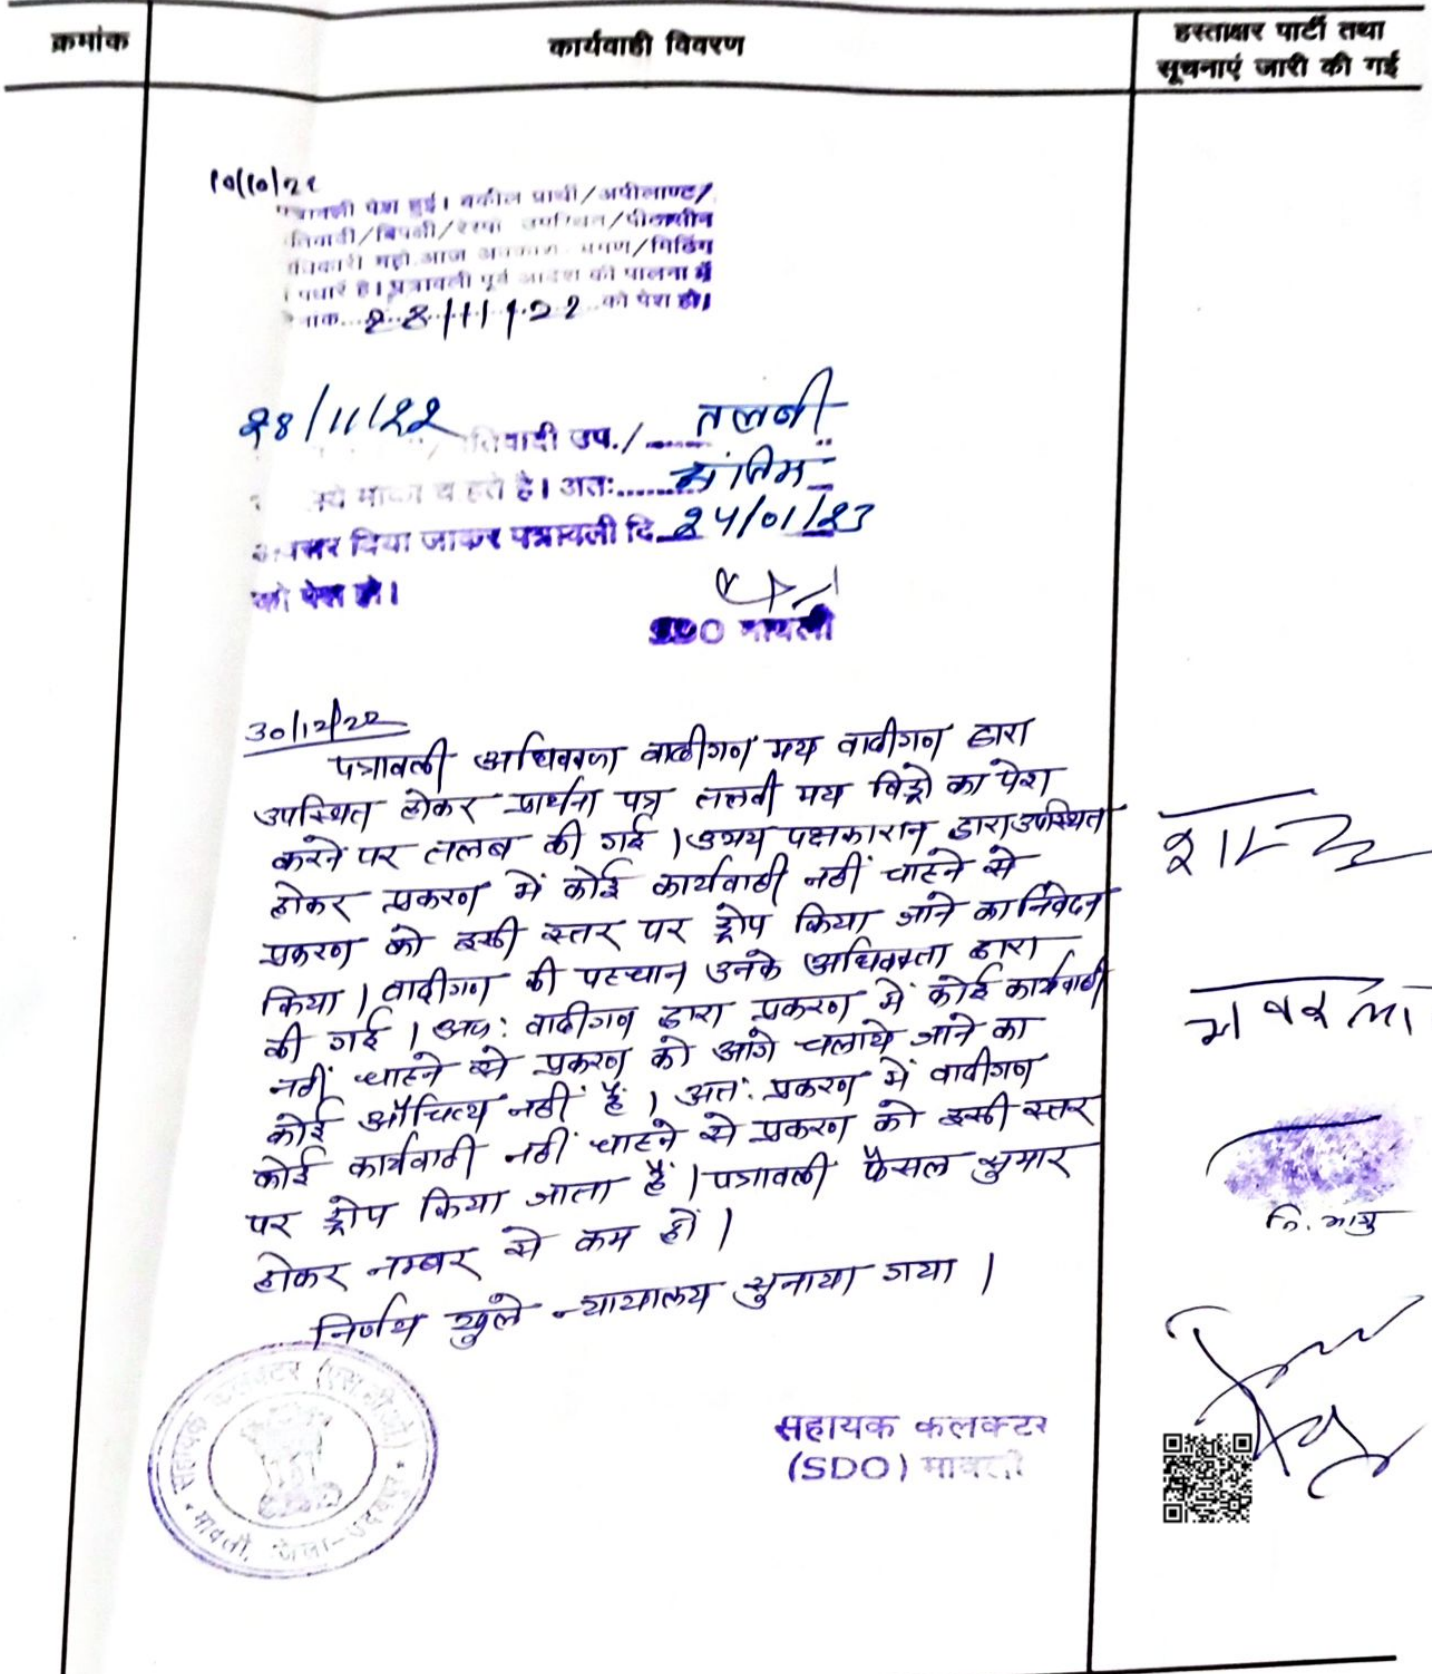 क्रमांक
कार्यवाही विवरण
हस्ताक्षर पार्टी तथा
सूचनाएं जारी की गई
10/10/22
पत्रावली पेश हुई। वकील प्रार्थी/अपीलाण्ट/
तिवादी/विपक्षी/रेस्पो उपस्थित/पीठासीन
धिकारी महो. आज अवकाश भ्रमण/मिटिंग
पधारे है। पत्रावली पूर्व आदेश की पालना में
नांक...28/11/22...को पेश हो।
28/11/22
तिवादी उप./......तलबी
चाहते है। अतः......अंतिम
अवसर दिया जाकर पत्रावली दि. 24/01/23
को पेश हो।
SDO मावली
30/12/22
पत्रावली अधिवक्ता वादीगण मय वादीगण द्वारा
उपस्थित होकर प्रार्थना पत्र तलबी मय विड्रो का पेश
करने पर तलब की गई। उभय पक्षकारान द्वारा उपस्थित
होकर प्रकरण में कोई कार्यवाही नहीं चाहने से
प्रकरण को इसी स्तर पर ड्रोप किया जाने का निवेदन
किया। वादीगण की पहचान उनके अधिवक्ता द्वारा
की गई। अतः वादीगण द्वारा प्रकरण में कोई कार्यवाही
नहीं चाहने से प्रकरण को आगे चलाये जाने का
कोई औचित्य नहीं हैं। अतः प्रकरण में वादीगण
कोई कार्यवाही नहीं चाहने से प्रकरण को इसी स्तर
पर ड्रोप किया जाता हैं। पत्रावली फैसल शुमार
होकर नम्बर से कम हों।
निर्णय खुले न्यायालय सुनाया गया।
नि. भागु
सहायक कलक्टर
(SDO) मावली
सहायक कलक्टर (एस.डी.ओ.)
मावली, जिला-उदयपुर